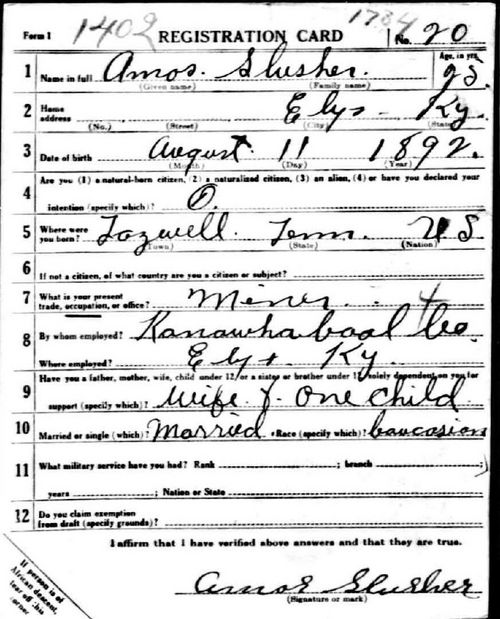 Form 1 1402 REGISTRATION CARD 1734 No. 20
1 Name in full Amos. Slusher. Age, in yrs. 25
(Given name) (Family name)
2 Home address Elys Ky.
(No.) (Street) (City) (State)
3 Date of birth August 11 1892.
(Month) (Day) (Year)
4 Are you (1) a natural-born citizen, (2) a naturalized citizen, (3) an alien, (4) or have you declared your
intention (specify which)? 1.
5 Where were you born? Tazwell. Tenn. U S
(Town) (State) (Nation)
6 If not a citizen, of what country are you a citizen or subject?
7 What is your present trade, occupation, or office? Miner. 4
8 By whom employed? Kanawha Coal Co.
Where employed? Elys. Ky.
9 Have you a father, mother, wife, child under 12, or a sister or brother under 12, solely dependent on you for
support (specify which)? Wife & One Child
10 Married or single (which)? Married Race (specify which)? Caucasion
11 What military service have you had? Rank ; branch ;
years ; Nation or State
12 Do you claim exemption from draft (specify grounds)?
I affirm that I have verified above answers and that they are true.
Amos Slusher
(Signature or mark)
If person is of
African descent,
tear off this
corner